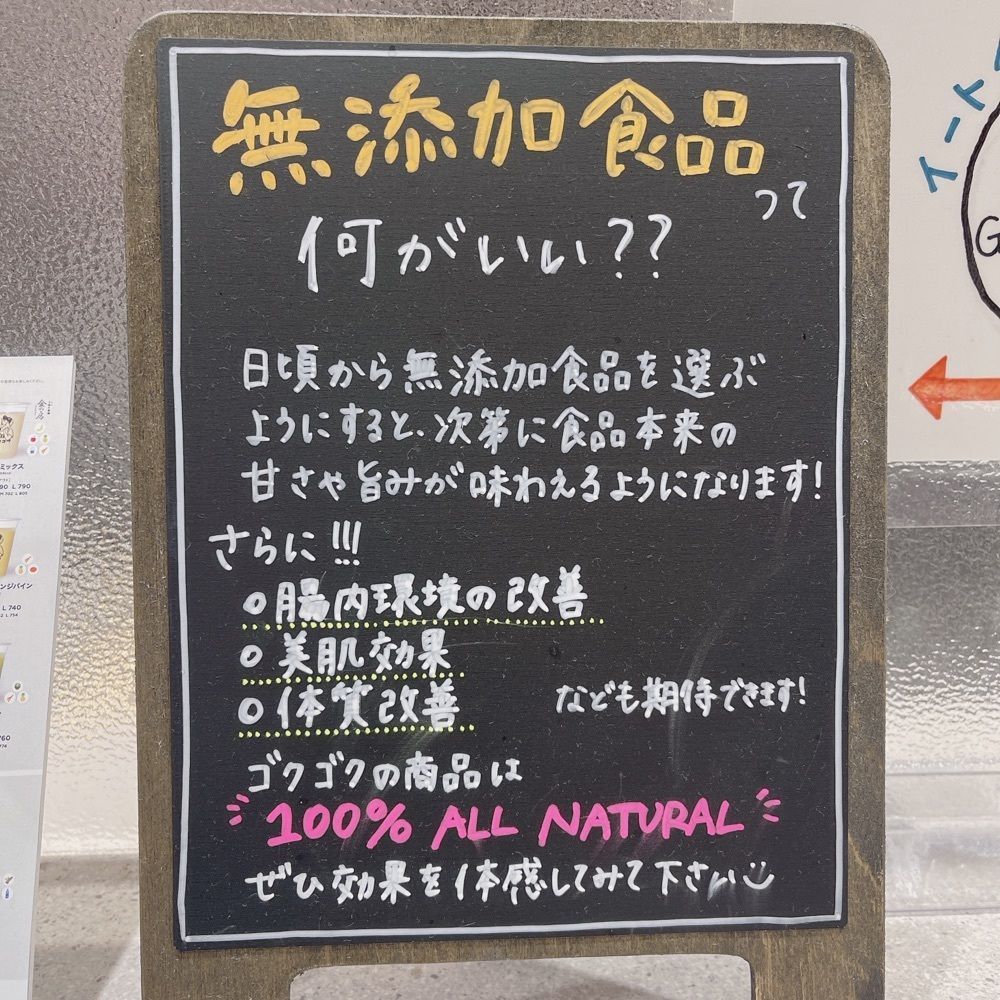 無添加食品
って
何がいい??
日頃から無添加食品を選ぶ
ようにすると、次第に食品本来の
甘さや旨みが味わえるようになります!
さらに!!!
○腸内環境の改善
○美肌効果
○体質改善
なども期待できます!
ゴクゴクの商品は
100% ALL NATURAL
ぜひ効果を体感してみて下さい
イート
G
ミックス
L 790
L 740